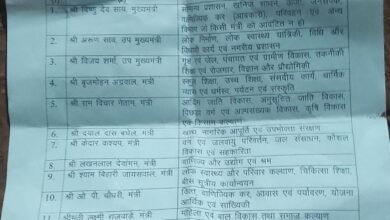 1. श्री विष्णु देव साय, मुख्यमंत्री
सामान्य प्रशासन, खनिज साधन, ऊर्जा, जनसंपर्क,
वाणिज्यिक कर (आबकारी), परिवहन एवं अन्य
विभाग जो किसी मंत्री को आवंटित न हो
2. श्री अरूण साव, उप मुख्यमंत्री
लोक निर्माण, लोक स्वास्थ्य यांत्रिकी, विधि और
विधायी कार्य एवं नगरीय प्रशासन
3. श्री विजय शर्मा, उप मुख्यमंत्री
गृह एवं जेल, पंचायत एवं ग्रामीण विकास, तकनीकी
शिक्षा एवं रोजगार, विज्ञान और प्रौद्योगिकी
4. श्री बृजमोहन अग्रवाल, मंत्री
स्कूल शिक्षा, उच्च शिक्षा, संसदीय कार्य, धार्मिक
न्यास एवं धर्मस्व, पर्यटन एवं संस्कृति
5. श्री राम विचार नेताम, मंत्री
आदिम जाति विकास, अनुसूचित जाति विकास,
पिछड़ा वर्ग एवं अल्पसंख्यक विकास, कृषि विकास
एवं किसान कल्याण
6. श्री दयाल दास बघेल, मंत्री
खाद्य नागरिक आपूर्ति एवं उपभोक्ता संरक्षण
7. श्री केदार कश्यप, मंत्री
वन एवं जलवायु परिवर्तन, जल संसाधन, कौशल
विकास एवं सहकारिता
8. श्री लखनलाल देवांगन, मंत्री
वाणिज्य और उद्योग एवं श्रम
9. श्री श्याम बिहारी जायसवाल, मंत्री
लोक स्वास्थ्य और परिवार कल्याण, चिकित्सा शिक्षा,
बीस सूत्रीय कार्यान्वयन
10. श्री ओ. पी. चौधरी, मंत्री
वित्त, वाणिज्यिक कर, आवास एवं पर्यावरण, योजना
आर्थिक एवं सांख्यिकी
11. श्रीमती लक्ष्मी राजवाड़े, मंत्री
महिला एवं बाल विकास तथा समाज कल्याण